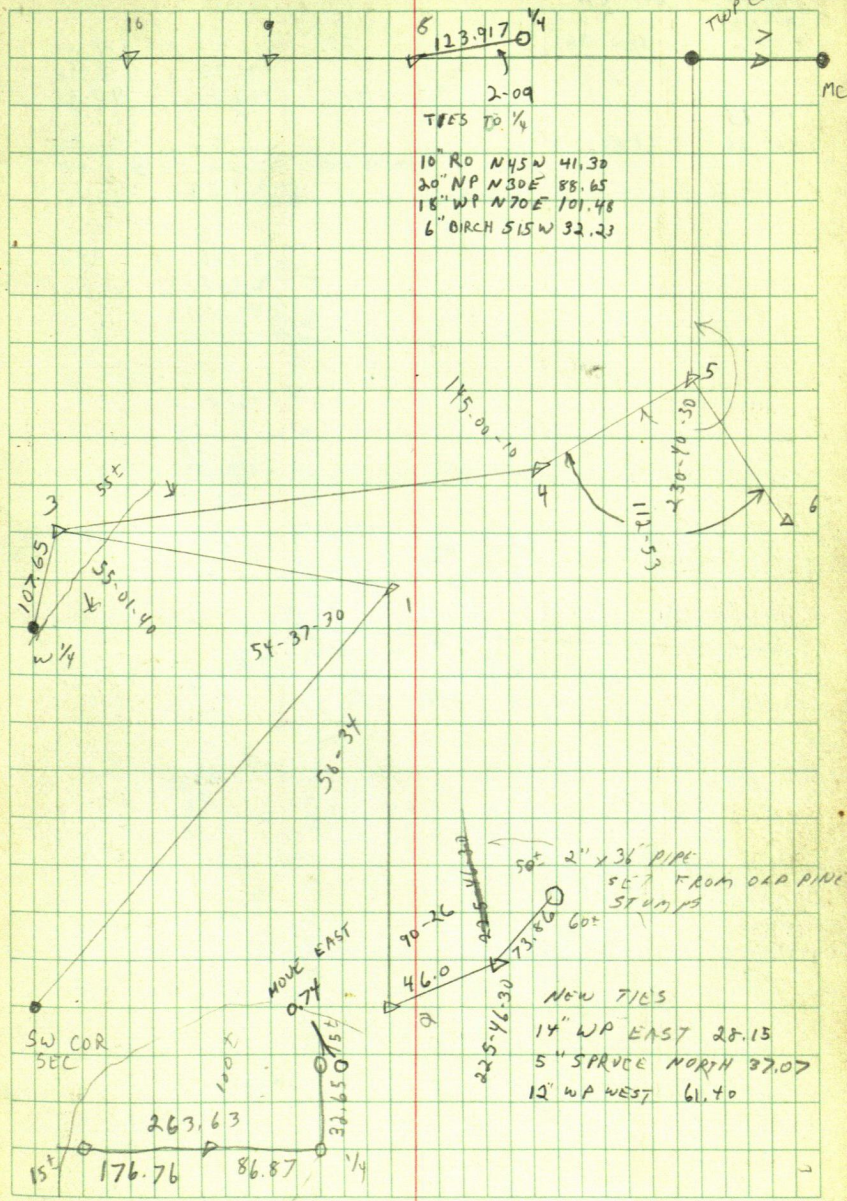 10
9
6
123.917
1/4
TWP C
MC
2-09
TIES TO 1/4
10" RO N45W 41.30
20" NP N30E 88.65
18" WP N70E 101.48
6" BIRCH S15W 32.23
145-00-10
5
230-40-30
4
112-53
6
3
55±
107.65
55-01-40
W 1/4
1
54-37-30
56-34
225-46-30
50± 2" x 36" PIPE
SET FROM OLD PINE
STUMPS
60±
90-26
73.86
46.0
2
225-46-30
MOVE EAST
0.74
SW COR
SEC
100±
15±
32.65
NEW TIES
14" WP EAST 28.15
5" SPRUCE NORTH 37.07
12" WP WEST 61.40
263.63
15±
176.76
86.87
1/4